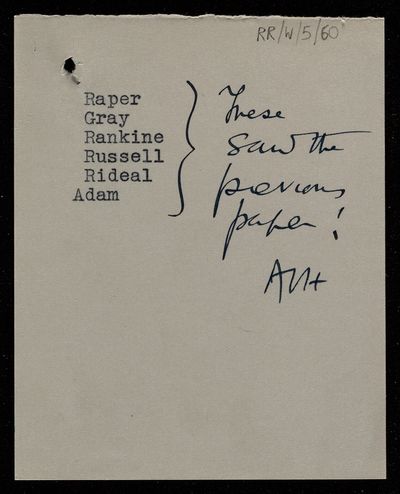 RR/W/5/60
Raper
Gray
Rankine
Russell
Rideal
Adam
These
saw the
previous
paper!
AVH